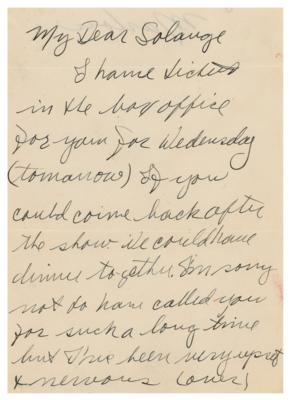 My Dear Solange
I have tickets
in the box office
for you for Wedensday
(tomorrow) If you
could come back after
the show we could have
dinner together. I'm sorry
not do have called you
for such a long time
but I've been very upset
& nervous (over)